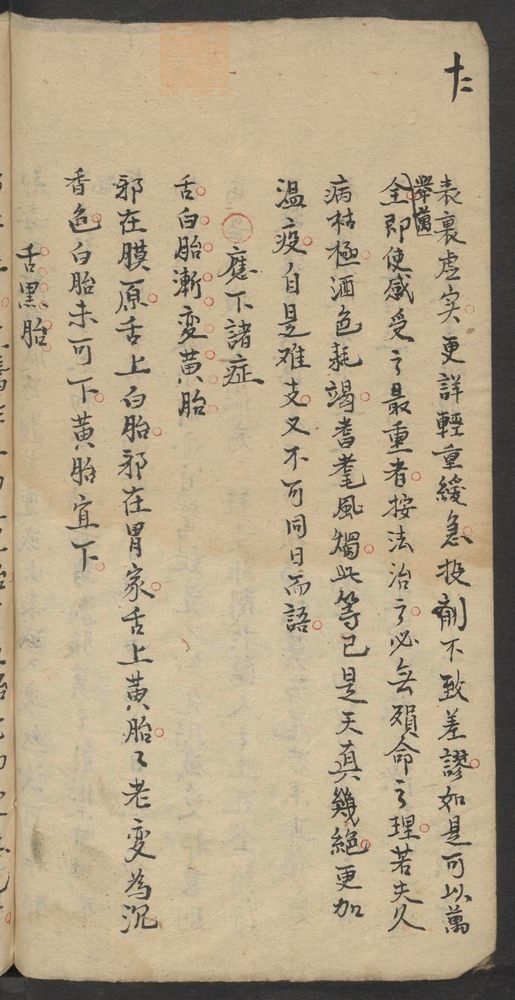 十二
表裏虛实更詳輕重緩急投劑不致差謬如是可以萬
舉萬
全即使感受之最重者按法治之必無殞命之理若夫久
病枯極酒色耗竭耆耄風燭此等已是天真幾絕更加
温疫自是难支又不可同日而語
應下諸症
舌白胎漸变黄胎
邪在膜原舌上白胎邪在胃家舌上黄胎〻老变為沉
香色白胎未可下黄胎宜下
舌黑胎